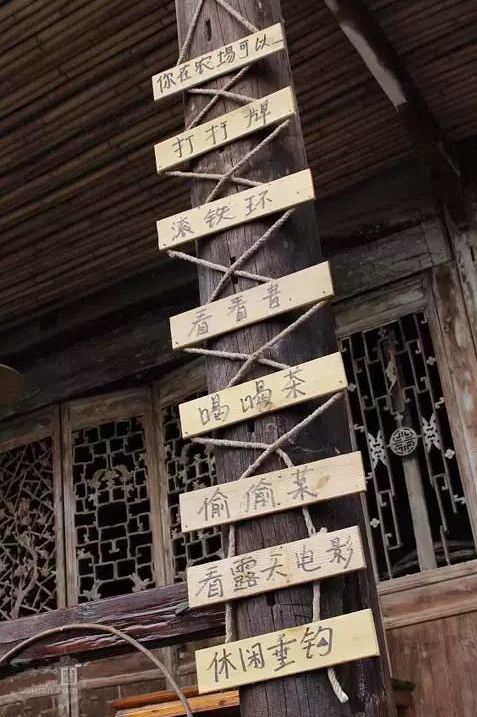 你在农场可以
打打牌
滚铁环
看看書
喝喝茶
偷偷菜
看露天电影
休闲垂钩